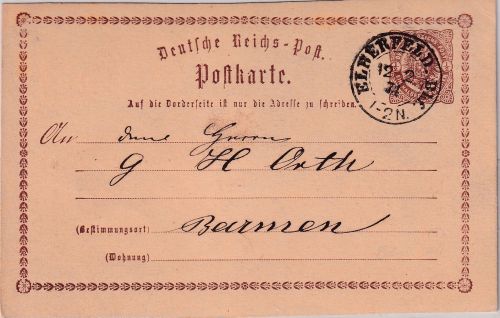 Deutsche Reichs-Post.
Postkarte.
ELBERFELD Bhf.
12 2
1-2N.
Auf die Vorderseite ist nur die Adresse zu schreiben.
An dem Herrn
G H Orth
(Bestimmungsort) Barmen
(Wohnung)